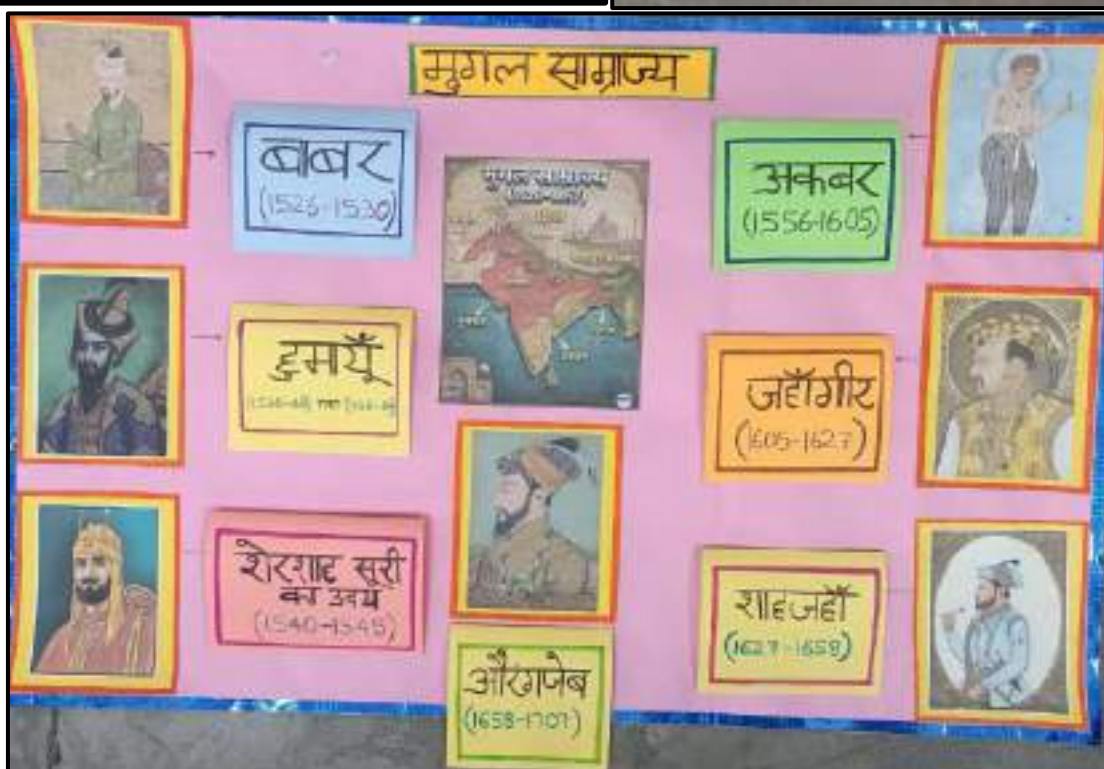 मुगल साम्राज्य
बाबर
(1526-1530)
हुमायूँ
तथा
शेरशाह सूरी
का उदय
(1540-1545)
मुगल साम्राज्य
औरंगजेब
(1658-1707)
अकबर
(1556-1605)
जहाँगीर
(1605-1627)
शाहजहाँ
(1627-1658)